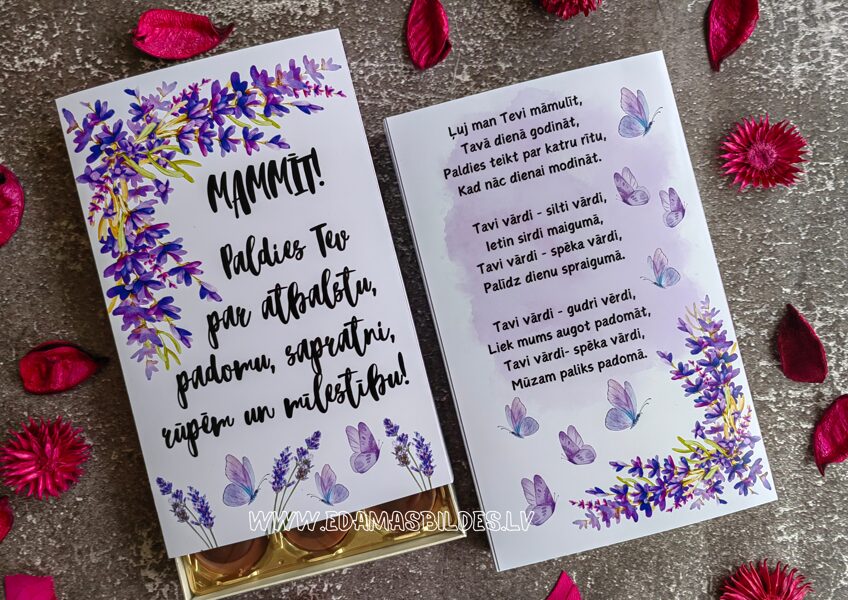 MAMMĪT!
Paldies Tev
par atbalstu,
padomu, sapratni,
rūpēm un mīlestību!
Ļuj man Tevi māmulīt,
Tavā dienā godināt,
Paldies teikt par katru rītu,
Kad nāc dienai modināt.
Tavi vārdi - silti vārdi,
Ietin sirdi maigumā,
Tavi vārdi - spēka vārdi,
Palīdz dienu spraigumā.
Tavi vārdi - gudri vērdi,
Liek mums augot padomāt,
Tavi vārdi- spēka vārdi,
Mūzam paliks padomā.
WWW.EDAMASBILDES.LV